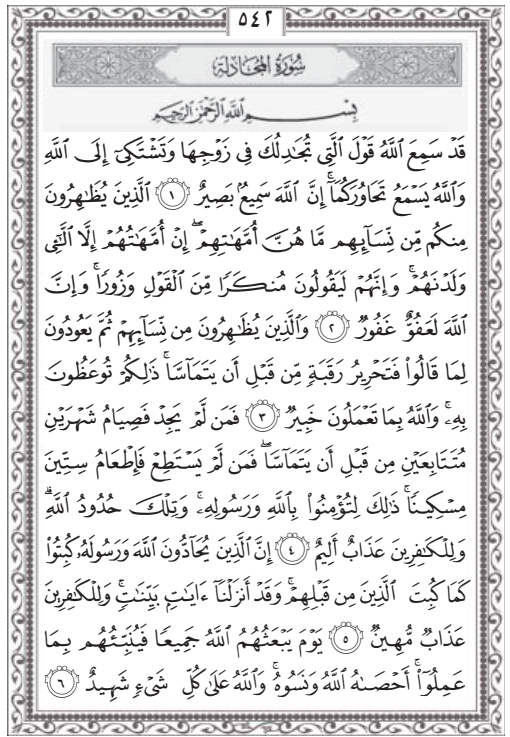 ٥٤٢
سُورَةُ المُجَادلة
بِسْمِ ٱللَّهِ ٱلرَّحْمَٰنِ ٱلرَّحِيمِ
قَدْ سَمِعَ ٱللَّهُ قَوْلَ ٱلَّتِي تُجَٰدِلُكَ فِي زَوْجِهَا وَتَشْتَكِيٓ إِلَى ٱللَّهِ
وَٱللَّهُ يَسْمَعُ تَحَاوُرَكُمَآۚ إِنَّ ٱللَّهَ سَمِيعٌۢ بَصِيرٌ ١ ٱلَّذِينَ يُظَٰهِرُونَ
مِنكُم مِّن نِّسَآئِهِم مَّا هُنَّ أُمَّهَٰتِهِمْۖ إِنْ أُمَّهَٰتُهُمْ إِلَّا ٱلَّٰٓـِٔي
وَلَدْنَهُمْۚ وَإِنَّهُمْ لَيَقُولُونَ مُنكَرًا مِّنَ ٱلْقَوْلِ وَزُورًاۚ وَإِنَّ
ٱللَّهَ لَعَفُوٌّ غَفُورٌ ٢ وَٱلَّذِينَ يُظَٰهِرُونَ مِن نِّسَآئِهِمْ ثُمَّ يَعُودُونَ
لِمَا قَالُوا۟ فَتَحْرِيرُ رَقَبَةٍ مِّن قَبْلِ أَن يَتَمَآسَّاۚ ذَٰلِكُمْ تُوعَظُونَ
بِهِۦۚ وَٱللَّهُ بِمَا تَعْمَلُونَ خَبِيرٌ ٣ فَمَن لَّمْ يَجِدْ فَصِيَامُ شَهْرَيْنِ
مُتَتَابِعَيْنِ مِن قَبْلِ أَن يَتَمَآسَّاۖ فَمَن لَّمْ يَسْتَطِعْ فَإِطْعَامُ سِتِّينَ
مِسْكِينًاۚ ذَٰلِكَ لِتُؤْمِنُوا۟ بِٱللَّهِ وَرَسُولِهِۦۚ وَتِلْكَ حُدُودُ ٱللَّهِۗ
وَلِلْكَٰفِرِينَ عَذَابٌ أَلِيمٌ ٤ إِنَّ ٱلَّذِينَ يُحَآدُّونَ ٱللَّهَ وَرَسُولَهُۥ كُبِتُوا۟
كَمَا كُبِتَ ٱلَّذِينَ مِن قَبْلِهِمْۚ وَقَدْ أَنزَلْنَآ ءَايَٰتٍۭ بَيِّنَٰتٍۚ وَلِلْكَٰفِرِينَ
عَذَابٌ مُّهِينٌ ٥ يَوْمَ يَبْعَثُهُمُ ٱللَّهُ جَمِيعًا فَيُنَبِّئُهُم بِمَا
عَمِلُوٓا۟ۚ أَحْصَىٰهُ ٱللَّهُ وَنَسُوهُۚ وَٱللَّهُ عَلَىٰ كُلِّ شَيْءٍ شَهِيدٌ ٦